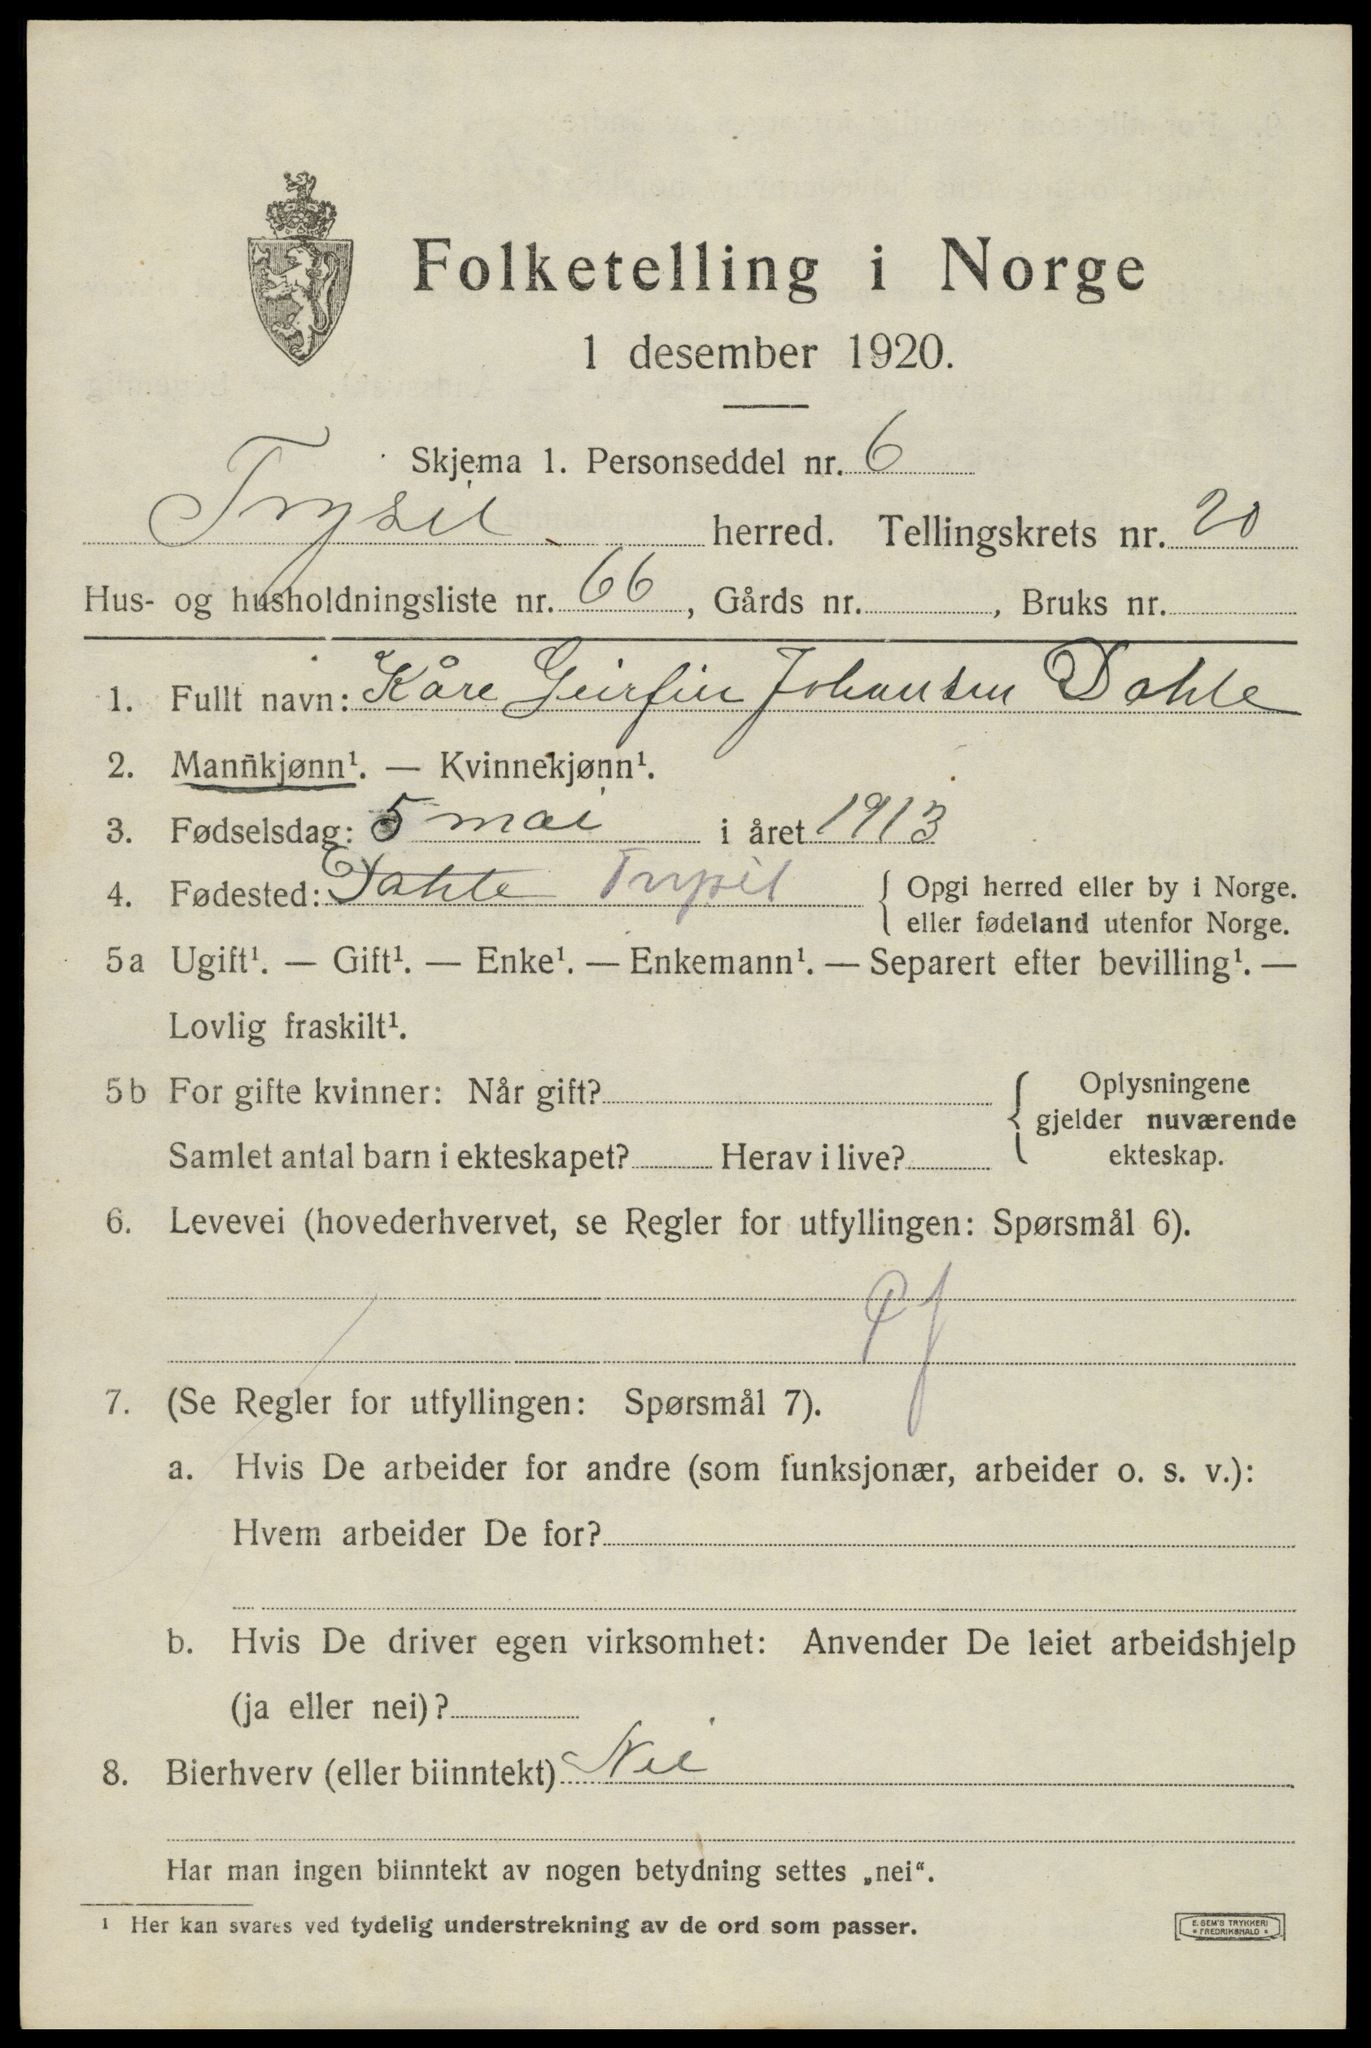 Folketelling i Norge
1 desember 1920.
Skjema 1. Personseddel nr. 6
Trysil herred. Tellingskrets nr. 20
Hus- og husholdningsliste nr. 66, Gårds nr. , Bruks nr.
1. Fullt navn: Kåre Geirfin Johansen Dahle
2. Mannkjønn¹. — Kvinnekjønn¹.
3. Fødselsdag: 5 mai i året 1913
4. Fødested: Dahle Trysil { Opgi herred eller by i Norge.
eller fødeland utenfor Norge.
5a Ugift¹. — Gift¹. — Enke¹. — Enkemann¹. — Separert efter bevilling¹. —
Lovlig fraskilt¹.
5b For gifte kvinner: Når gift? { Oplysningene
gjelder nuværende
Samlet antal barn i ekteskapet? Herav i live? ekteskap.
6. Levevei (hovederhvervet, se Regler for utfyllingen: Spørsmål 6).
Pf
7. (Se Regler for utfyllingen: Spørsmål 7).
a. Hvis De arbeider for andre (som funksjonær, arbeider o. s. v.):
Hvem arbeider De for?
b. Hvis De driver egen virksomhet: Anvender De leiet arbeidshjelp
(ja eller nei)?
8. Bierhverv (eller biinntekt) Nei
Har man ingen biinntekt av nogen betydning settes „nei“.
¹ Her kan svares ved tydelig understrekning av de ord som passer.
E. SEM'S TRYKKERI
* FREDRIKSHALD *